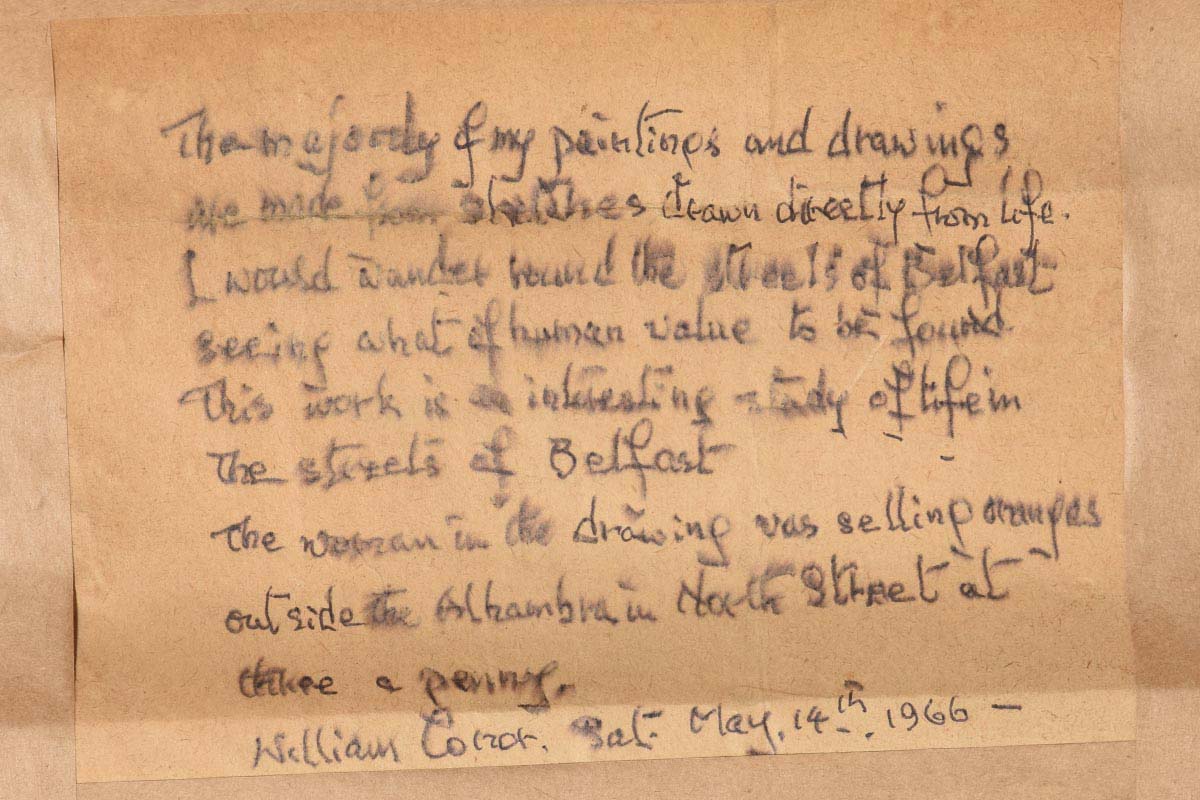 The majority of my paintings and drawings
are made from sketches drawn directly from life.
I would wander round the streets of Belfast
seeing what of human value to be found
This work is an interesting study of life in
the streets of Belfast
The woman in the drawing was selling oranges
outside the Alhambra in North Street at
three a penny.
William Conor. Sat. May. 14th. 1966 –